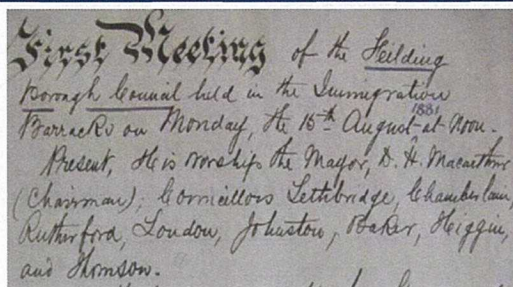 First Meeting of the Feilding
Borough Council held in the Immigration
Barracks on Monday, the 15th August 1881 at Noon.
Present, His worship the Mayor, D. H. Macarthur
(Chairman); Councillors Lethbridge, Chamberlain,
Rutherford, London, Johnston, Baker, Higgin,
and Thomson.